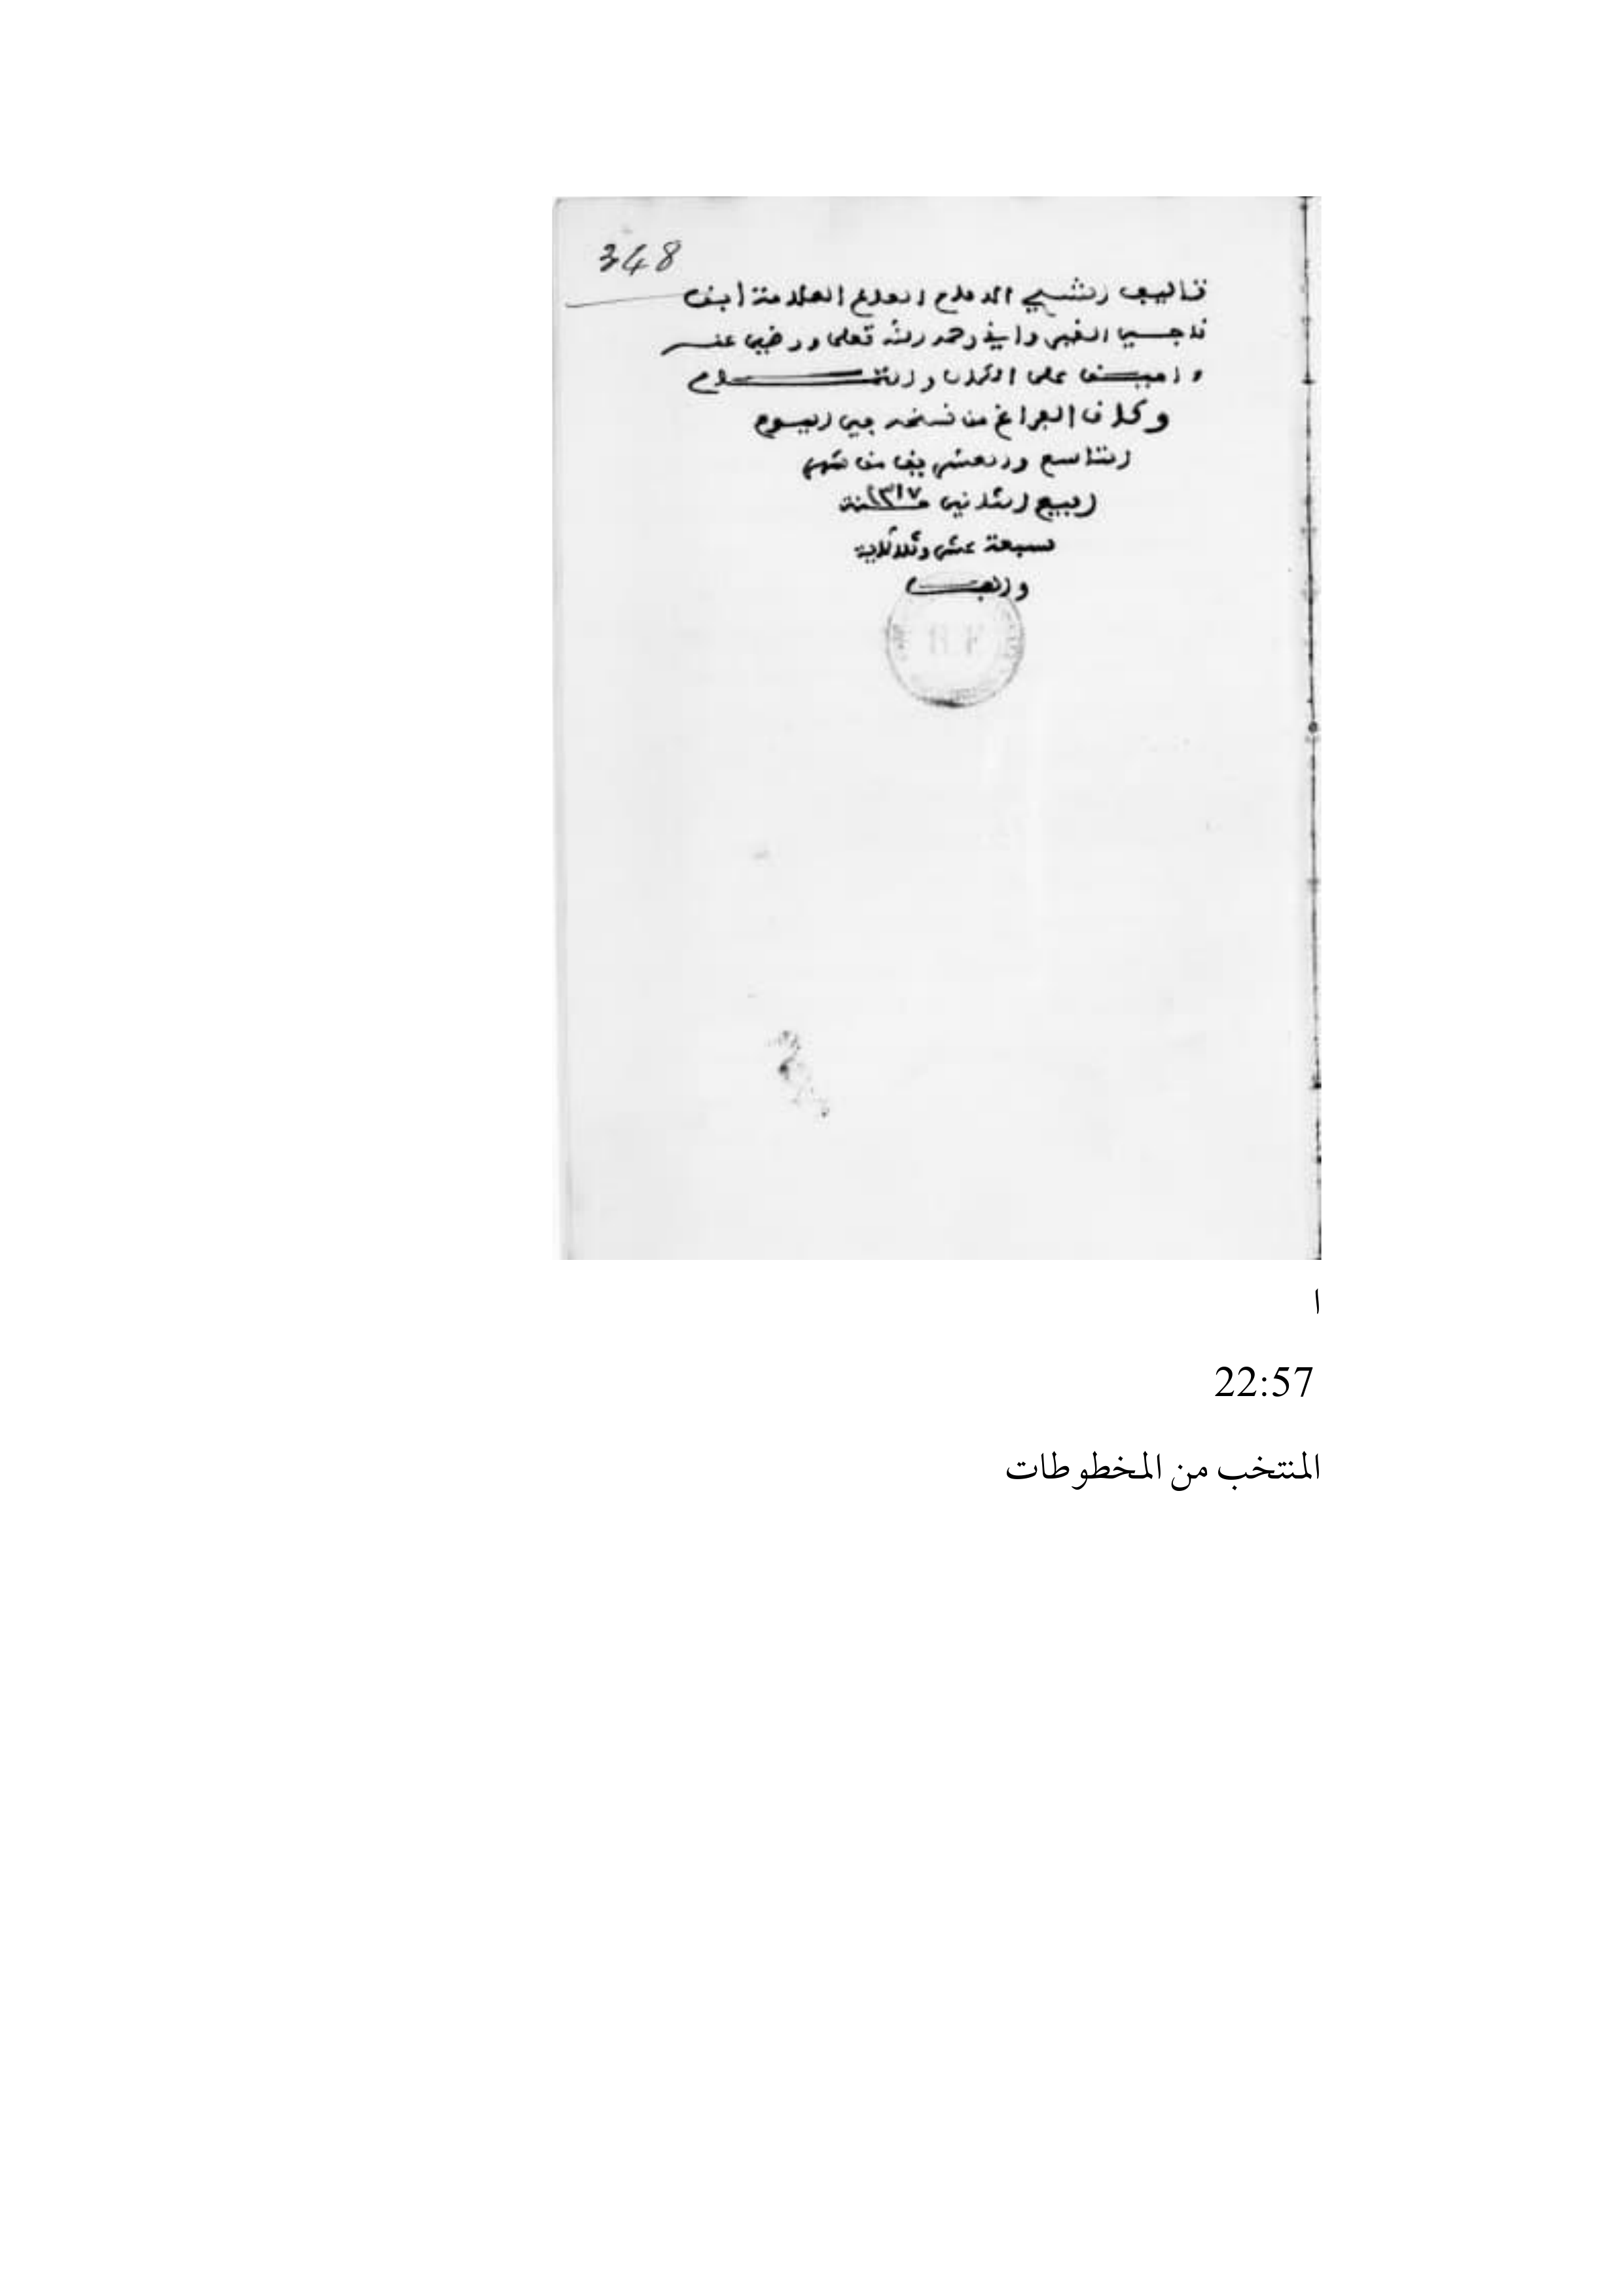 348
تاليف الشيخ الامام العالم العلامة ابن
ناجي القيرواني رحمه الله تعلى ورضي عنه
على الكمال والتمام
وكان الفراغ من نسخه في اليوم
التاسع والعشرين من شهر
ربيع الثاني سنة ١٣١٧
سبعة عشر وثلاثماية
والف
ا
22:57
المنتخب من المخطوطات